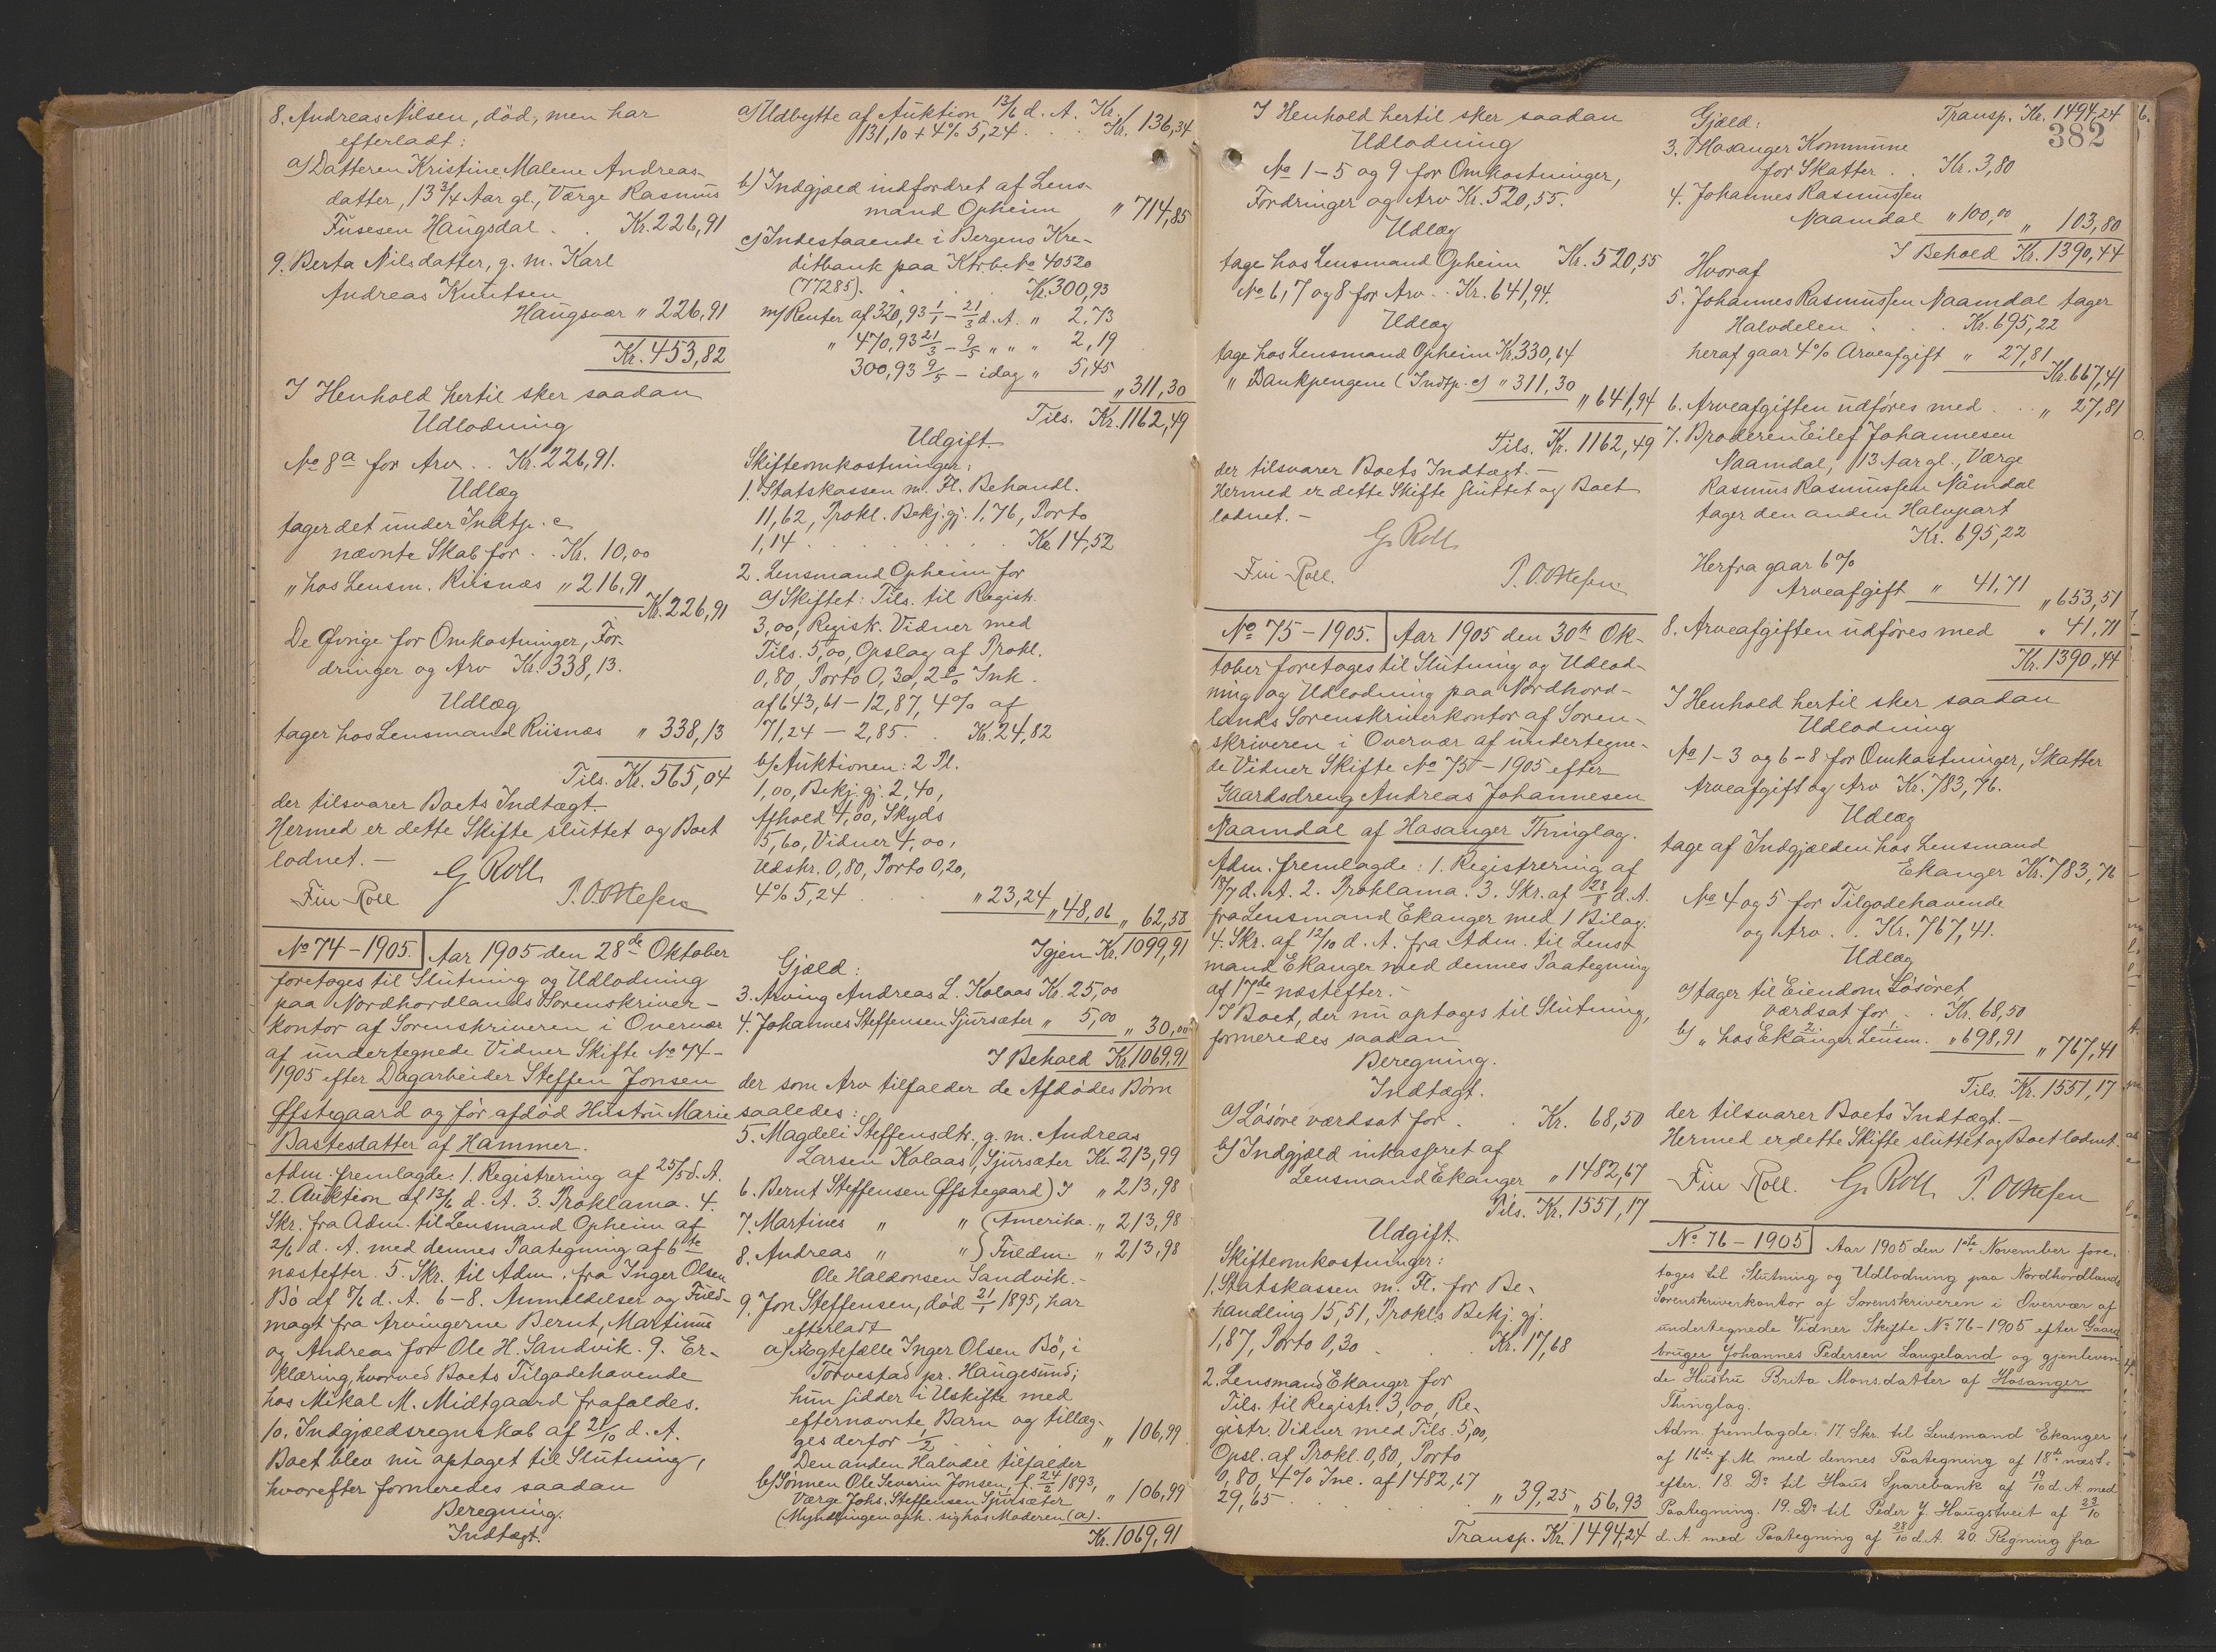 8. Andreas Nilsen, död, men har
efterladt:
a) Datteren Kristine Malene Andreas-
datter, 13 3/4 Aar gl., Værge Rasmus
Fusesen Haugsdal . . Kr. 226,91
9. Berta Nilsdatter, g. m. Karl
Andreas Knutsen
Haugsvær " 226,91
Kr. 453,82
I Henhold hertil sker saadan
Udlodning
No 8a for Arv . . Kr. 226,91.
Udlæg
tager det under Indtp. c
nævnte Skab for . . Kr. 10,00
" hos Lensm. Riisnæs " 216,91
Kr. 226,91
De Øvrige for Omkostninger, For-
dringer og Arv Kr. 338,13.
Udlæg
tager hos Lensmand Riisnæs " 338,13
Tils. Kr. 565,04
der tilsvarer Boets Indtægt.
Hermed er dette Skifte sluttet og Boet
lodnet. —
G Roll
Fin Roll
No 74 – 1905. Aar 1905 den 28de Oktober
foretoges til Slutning og Udlodning
paa Nordhordlands Sorenskriver-
kontor af Sorenskriveren i Overvær
af undertegnede Vidner Skifte No 74-
1905 efter Dagarbeider Steffen Jonsen
Øfstegaard og før afdød Hustru Marie
Bastesdatter af Hammer.
Adm. fremlagde: 1. Registrering af 25/5 d. A.
2. Auktion af 13/6 d. A. 3. Proklama. 4.
Skr. fra Adm. til Lensmand Opheim af
2/6 d. A. med dennes Paategning af 6te
næstefter. 5. Skr. til Adm. fra Inger Olsen
Bö af 8/6 d. A. 6–8. Anmeldelser og Fuld-
magt fra Arvingerne Bernt, Martinus
og Andreas for Ole H. Sandvik. 9. Er-
klæring, hvorved Boets Tilgodehavende
hos Mikal M. Midtgaard frafaldes.
10. Indgjældsregnskab af 21/10 d. A.
Boet blev nu optaget til Slutning,
hvorefter formeredes saadan
Beregning.
Indtægt.
a) Udbytte af Auktion 13/6 d. A. Kr.
131,10 + 4% 5,24 . . . Kr. 136,34
b) Indgjæld indfordret af Lens-
mand Opheim " 714,85
c) Indestaaende i Bergens Kre-
ditbank paa Ktrb. No 40520
(77285) . . . Kr. 300,93
m/ Renter af 320,93 1/1 – 21/3 d. A. " 2,73
" 470,93 21/3 – 9/5 " " " 2,19
300,93 9/5 – idag " 5,45
" 311,30
Tils. Kr. 1162,49
Udgift.
Skifteomkostninger:
1. Statskassen m. Fl. Behandl.
11,62, Prokl. Bekj.gj. 1,76, Porto
1,14 . . . Kr. 14,52
2. Lensmand Opheim for
a) Skiftet: Tils. til Registr.
3,00, Registr. Vidner med
Tils. 5,00, Opslag af Prokl.
0,80, Porto 0,30, 2% Ink.
af 643,61 – 12,87, 4% af
71,24 – 2,85. . Kr. 24,82
b) Auktionen: 2 Pl.
1,00, Bekj.gj. 2,40,
Afhold 4,00, Skyds
5,60, Vidner 4,00,
Udskr. 0,80, Porto 0,20,
4% 5,24 . . . " 23,24 " 48,06 " 62,58
Igjen Kr. 1099,91
Gjæld:
3. Arving Andreas L. Kolaas Kr. 25,00
4. Johannes Steffensen Sjursæter " 5,00 " 30,00
I Behold Kr. 1069,91
der som Arv tilfalder de Afdödes Börn
saaledes:
5. Magdeli Steffensdtr., g. m. Andreas
Larsen Kolaas, Sjursæter Kr. 213,99
6. Bernt Steffensen Øfstegaard) I " 213,98
7. Martines " " (Amerika. " 213,98
8. Andreas " " ) Fuldm. " 213,98
Ole Haldorsen Sandvik. –
9. Jon Steffensen, död 21/1 1895, har
efterladt
a) Ægtefælle Inger Olsen Bö, i
Torvestad pr. Haugesund;
hun sidder i Uskifte med
efternævnte Barn og tillæg-
ges derfor 1/2 . " 106,99
Den anden Halvdel tilfalder
b) Sönnen Ole Severin Jonsen, f. 24/2 1893,
Værge Johs. Steffensen Sjursæter " 106,99
(Myndlingen oph. sig hos Moderen (a).
Kr. 1069,91
I Henhold hertil sker saadan
Udlodning
No 1–5 og 9 for Omkostninger,
Fordringer og Arv Kr. 520,55.
Udlæg
tage hos Lensmand Opheim Kr. 520,55
No 6, 7 og 8 for Arv . . Kr. 641,94.
Udlæg
tage hos Lensmand Opheim Kr. 330,64
" Bankpengene (Indtp. c) " 311,30
" 641,94
Tils. Kr. 1162,49
der tilsvarer Boets Indtægt. –
Hermed er dette Skifte sluttet og Boet
lodnet. –
G. Roll
Fin Roll.
No 75 – 1905. Aar 1905 den 30te Ok-
tober foretoges til Slutning og Udlod-
ning og Udlodning paa Nordhord-
lands Sorenskriverkontor af Soren-
skriveren i Overvær af undertegne-
de Vidner Skifte No 75 – 1905 efter
Gaardsdreng Andreas Johannesen
Naamdal af Hosanger Thinglag.
Adm. fremlagde: 1. Registrering af
18/7 d. A. 2. Proklama. 3. Skr. af 28/8 d. A.
fra Lensmand Ekanger med 1 Bilag.
4. Skr. af 12/10 d. A. fra Adm. til Lens-
mand Ekanger med dennes Paategning
af 17de næstefter. –
I Boet, der nu optages til Slutning,
formeredes saadan
Beregning.
Indtægt.
a) Lösöre værdsat for . . Kr. 68,50
b) Indgjæld inkasseret af
Lensmand Ekanger " 1482,67
Tils. Kr. 1551,17
Udgift
Skifteomkostninger:
1. Statskassen m. Fl. for Be-
handling 15,51, Prokls Bekj.gj.
1,87, Porto 0,30 . . . Kr. 17,68
2. Lensmand Ekanger for
Tils. til Registr. 3,00, Re-
gistr. Vidner med Tils. 5,00,
Opsl. af Prokl. 0,80, Porto
0,80, 4% Inc. af 1482,67
29,65 . . . " 39,25 " 56,93
Transp. Kr. 1494,24
Transp. Kr. 1494,24
382
Gjæld:
3. Hosanger Kommune
for Skatter . . Kr. 3,80
4. Johannes Rasmussen
Naamdal " 100,00 " 103,80
I Behold Kr. 1390,44
Hvoraf
5. Johannes Rasmussen Naamdal tager
Halvdelen . . . Kr. 695,22
heraf gaar 4% Arveafgift " 27,81
Kr. 667,41
6. Arveafgiften udföres med . . . " 27,81
7. Broderen Eilef Johannesen
Naamdal, 13 Aar gl., Værge
Rasmus Rasmussen Nåmdal
tager den anden Halvpart
Kr. 695,22
Herfra gaar 6%
Arveafgift " 41,71
" 653,51
8. Arveafgiften udföres med " 41,71
Kr. 1390,44
I Henhold hertil sker saadan
Udlodning
No 1–3 og 6–8 for Omkostninger, Skatter
Arveafgift og Arv Kr. 783,76.
Udlæg
tage af Indgjælden hos Lensmand
Ekanger Kr. 783,76
No 4 og 5 for Tilgodehavende
og Arv . . Kr. 767,41.
Udlæg
a) tager til Eiendom Lösöret
værdsat for . . Kr. 68,50
b) " hos Ekanger Lensm. " 698,91
" 767,41
Tils. Kr. 1551,17
der tilsvarer Boets Indtægt. –
Hermed er dette Skifte sluttet og Boet lodnet.
Fin Roll. G. Roll
No 76 – 1905 Aar 1905 den 1ste November fore-
tages til Slutning og Udlodning paa Nordhordlands
Sorenskriverkontor af Sorenskriveren i Overvær af
undertegnede Vidner Skifte No 76 – 1905 efter Gaard-
bruger Johannes Pedersen Langeland og gjenleven-
de Hustru Brita Monsdatter af Hosanger
Thinglag.
Adm. fremlagde: 17. Skr. til Lensmand Ekanger
af 16de f. M. med dennes Paategning af 18de næst-
efter. 18. Do til Haus Sparebank af 19/10 d. A. med
Paategning. 19. Do til Peder J. Haugstveit af 23/10
d. A. med Paategning af 28/10 d. A. 20. Regning fra